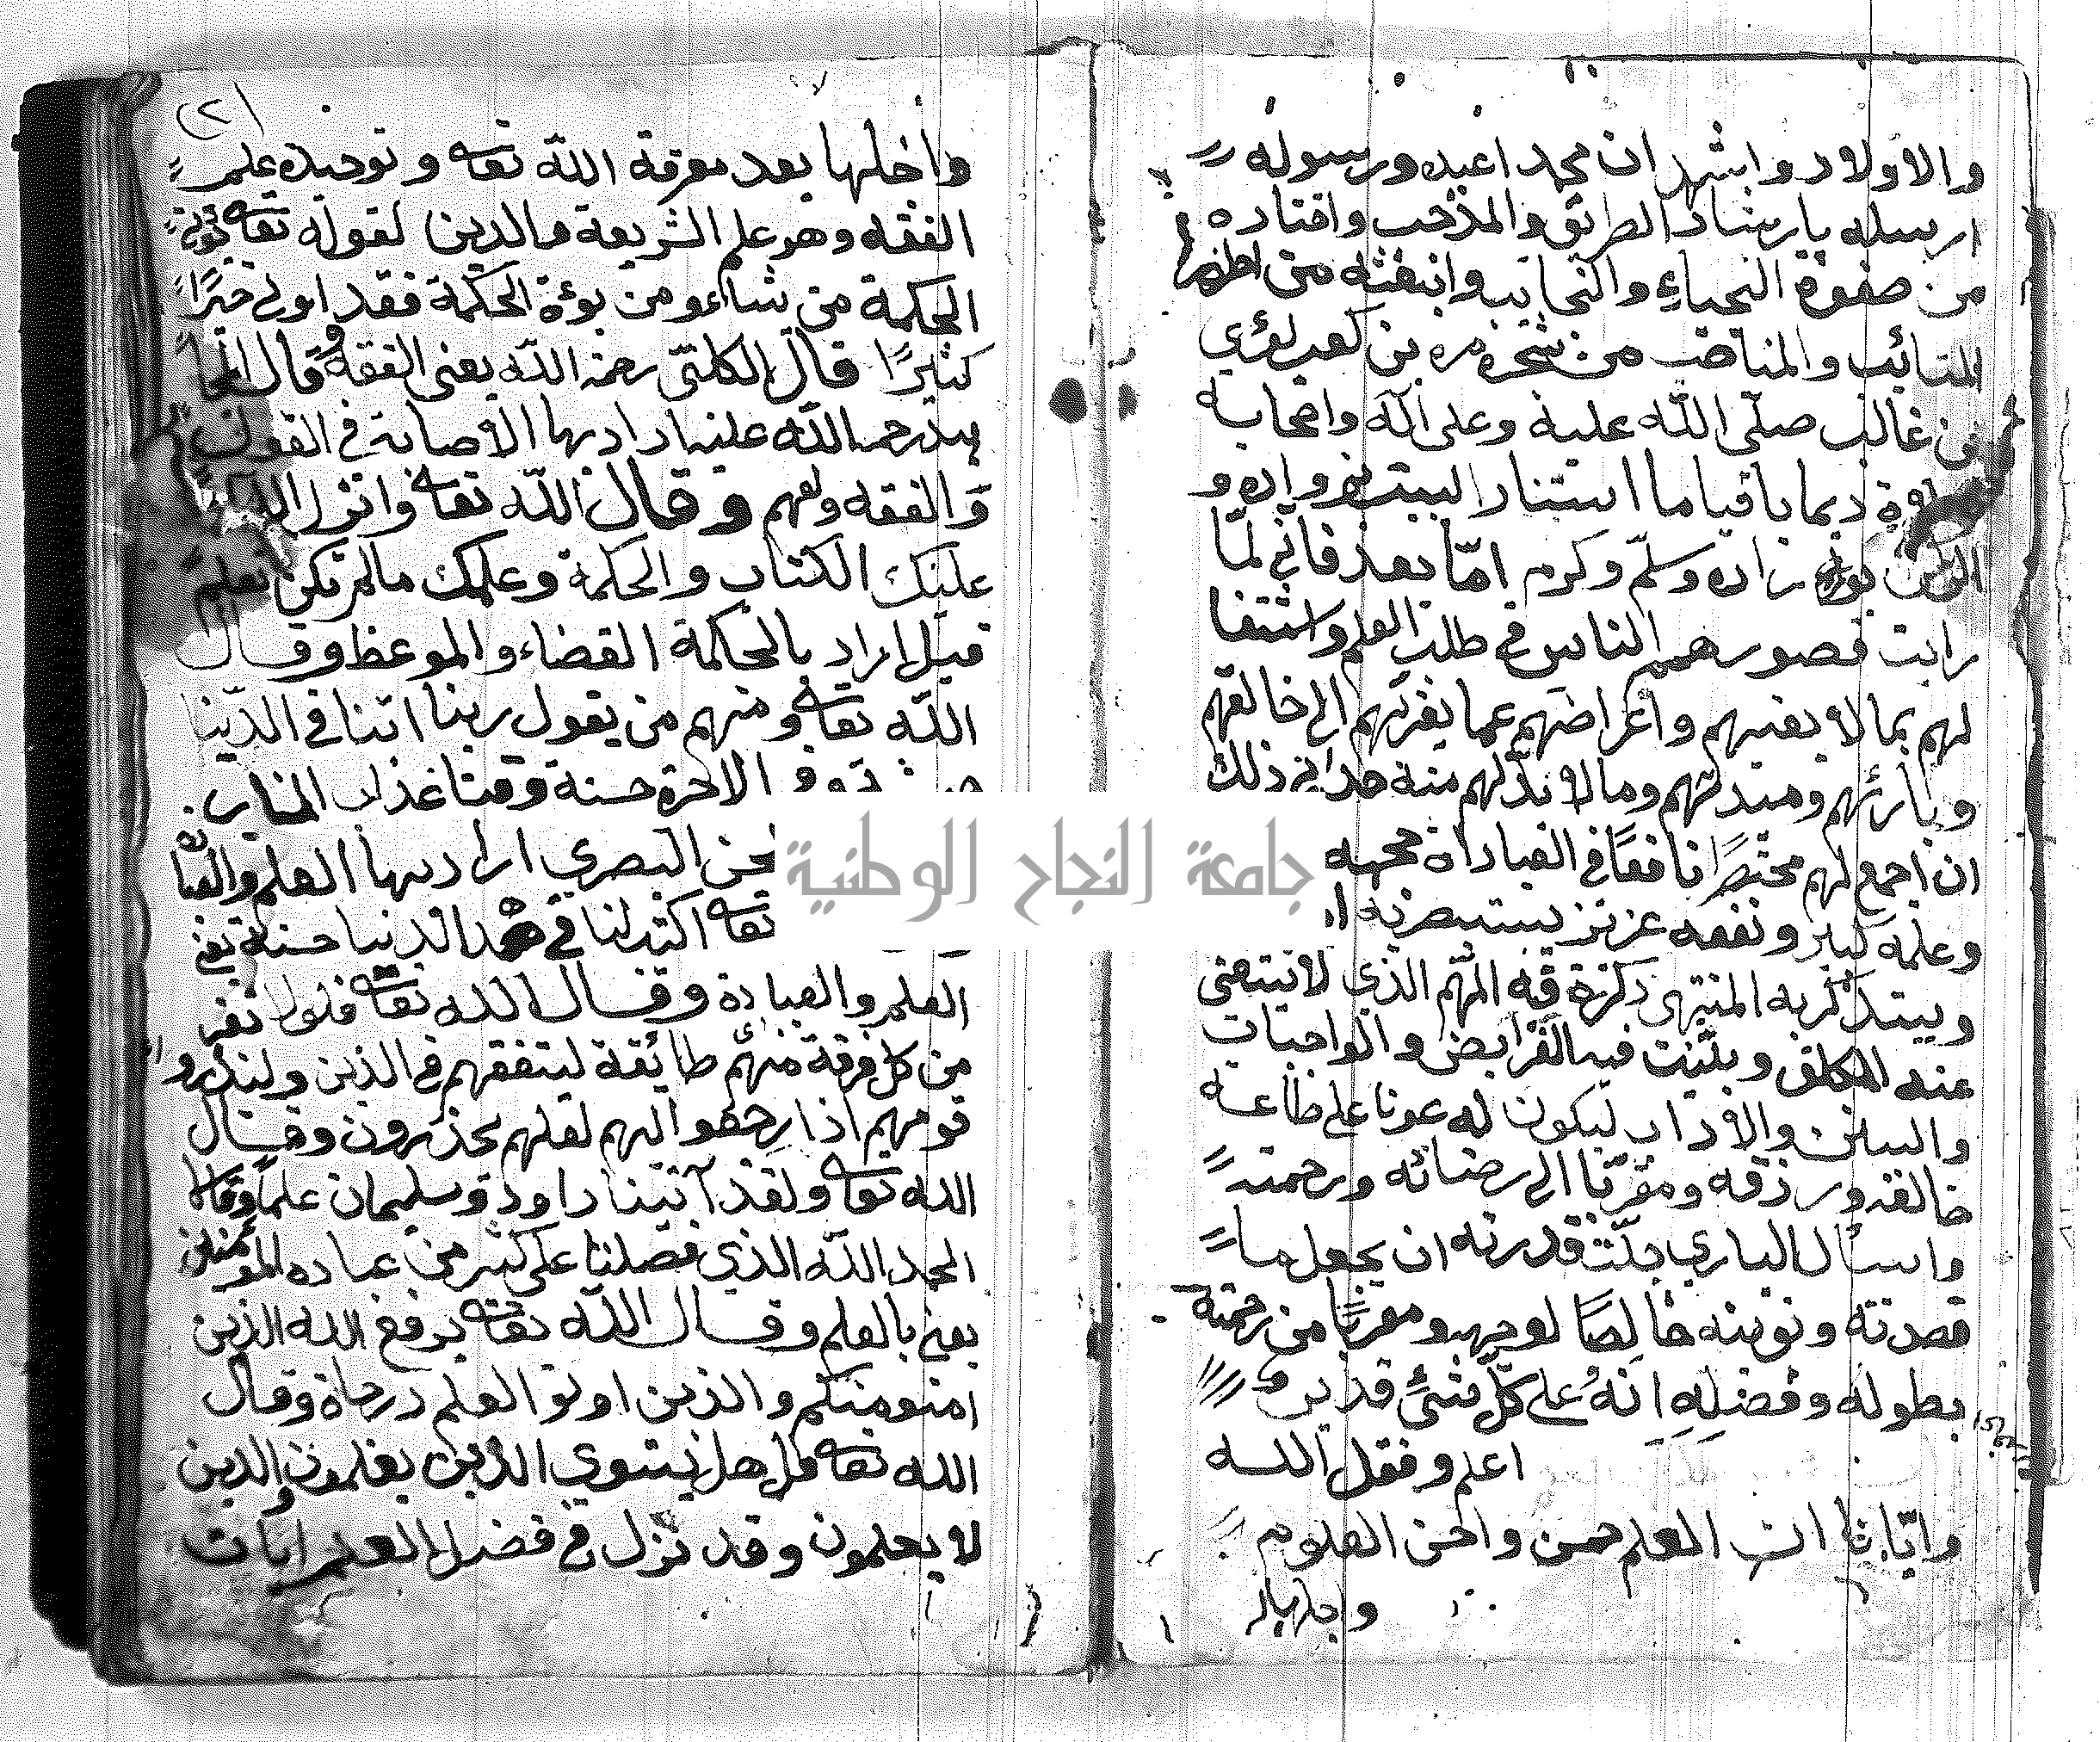 والاولاد واشهد ان محمدا عبده ورسوله
ارسله بارشاد الطريق والمذهب واختاره
من صفوة النجباء والنجايب وانبعثه من اطهر
المتائب والمناصب من شجره مره بن كعب لؤي
بن غالب صلى الله عليه وعلى آله واصحابه
ديما باقيا ما استنار البيت بزواره و
الركن زاده وسلم وكرم اما بعد فاني لما
رايت قصور همم الناس في طلب العلم واشتغا
لهم بما لا يعنيهم واعراضهم عما يقربهم الى خالقهم
وبارئهم ومبدئهم وما لا بد لهم منه حداني ذلك
ان اجمع لهم مختصرا نافعا في العبادات حجمه
وعلمه كبير ونفعه عزيز يستبصر به
ويتذكر به المنتهى ذكرت فيه المهم الذي لا يستغني
عنه المكلف وبينت فيه الفرايض والواجبات
والسنن والاداب ليكون له عونا على طاعته
خالقه ورزقه ومقربا الى رضائه ورحمته
واسال الباري جلت قدرته ان يجعل ما
قصدته ونويته خالصا لوجهه ومقربا من رحمته
بطوله وفضله انه على كل شئ قدير
اعلم وفقك الله
وايانا ان العلم حسن واحسن العلوم
واجلها
(٢)
واجلها بعد معرفة الله تعالى وتوحيده علم
الفقه وهو علم الشريعة والدين لقوله تعالى يؤتي
الحكمة من يشاء ومن يؤة الحكمة فقد اوتي خيرا
كثيرا قال الكلبي رحمه الله يعني الفقه وقال مجا
هد رحمه الله عليه اراد بها الاصابة في القول
والفقه وفهم وقال الله تعالى وانزل الله
عليك الكتاب والحكمة وعلمك مالم تكن تعلم
قيل اراد بالحكمة القضاء والموعظ وقال
الله تعالى ومنهم من يقول ربنا اتنا في الدنيا
الاخرة حسنة وقنا عذاب النار
البصري اراد بها العلم والعبا
تعالى اكتب لنا في هذه الدنيا حسنة يعني
العلم والعبادة وقال الله تعالى فلولا نفر
من كل فرقة منهم طائفة ليتفقهم في الدين ولينذروا
قومهم اذا رجعوا اليهم لعلهم يحذرون وقال
الله تعالى ولقد آتينا داود وسليمان علما وقالا
الحمد الله الذي فضلنا على كثير من عباده المؤمنين
يعني بالعلم وقال الله تعالى يرفع الله الذين
امنو منكم والذين اوتو العلم درجاة وقال
الله تعالى قل هل يستوي الذين يعلمون والذين
لا يعلمون وقد نزل في فضل العلم ايات
جامعة النجاح الوطنية